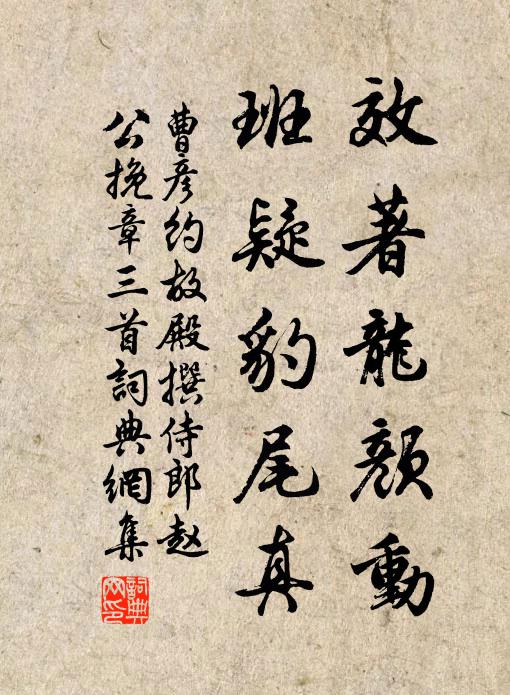 效著龍顔動
班疑豹尾真
曹彥約故殿撰侍郎赵
公挽章三首詞典網集
詞典
网印